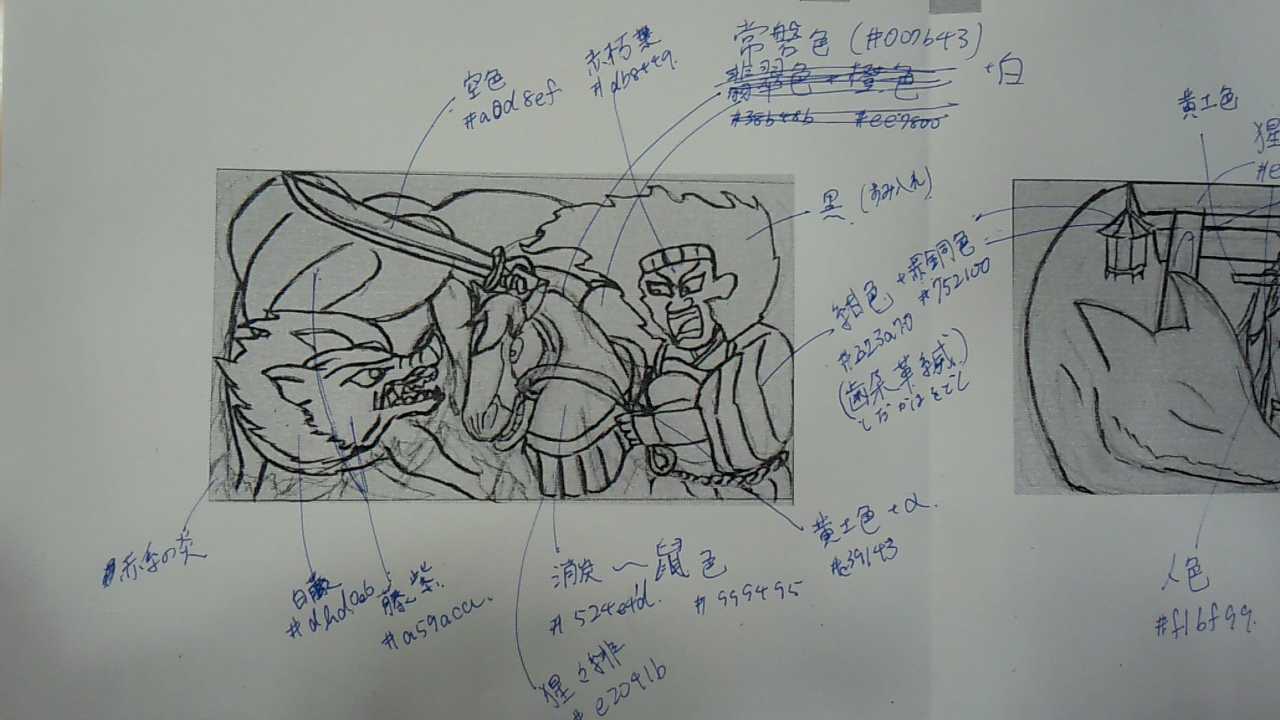 空色
#a0d8ef
赤朽葉
常磐色 (#007b43)
翡翠色 + 橙色
+白
#38b48b #ee7800
黄土色
猩
#e
黒
紺色 + 赤銅色
#223a70 #752100
(歯朶革縅)
しだかはをどし
黄土色 + α
#c39143
人色
#f1bf99
消炭 〜 鼠色
#524e4d #999495
藤紫
#a59aca
猩々緋
#e2041b